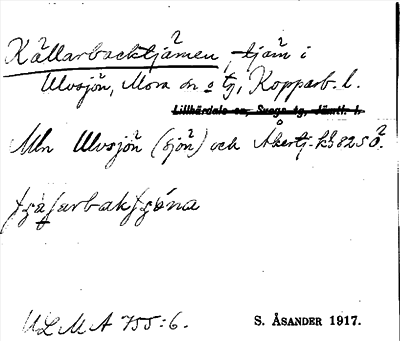 Källarbacktjärnen, tjärn i
Ulvsjön, Mora sn o tg, Kopparb. l.
Lillhärdals sn, Svegs tg, Jämtl. l.
Mln Ulvsjön (sjön) och Åkertj. kb 8250.
ULMA 755:6.
S. ÅSANDER 1917.